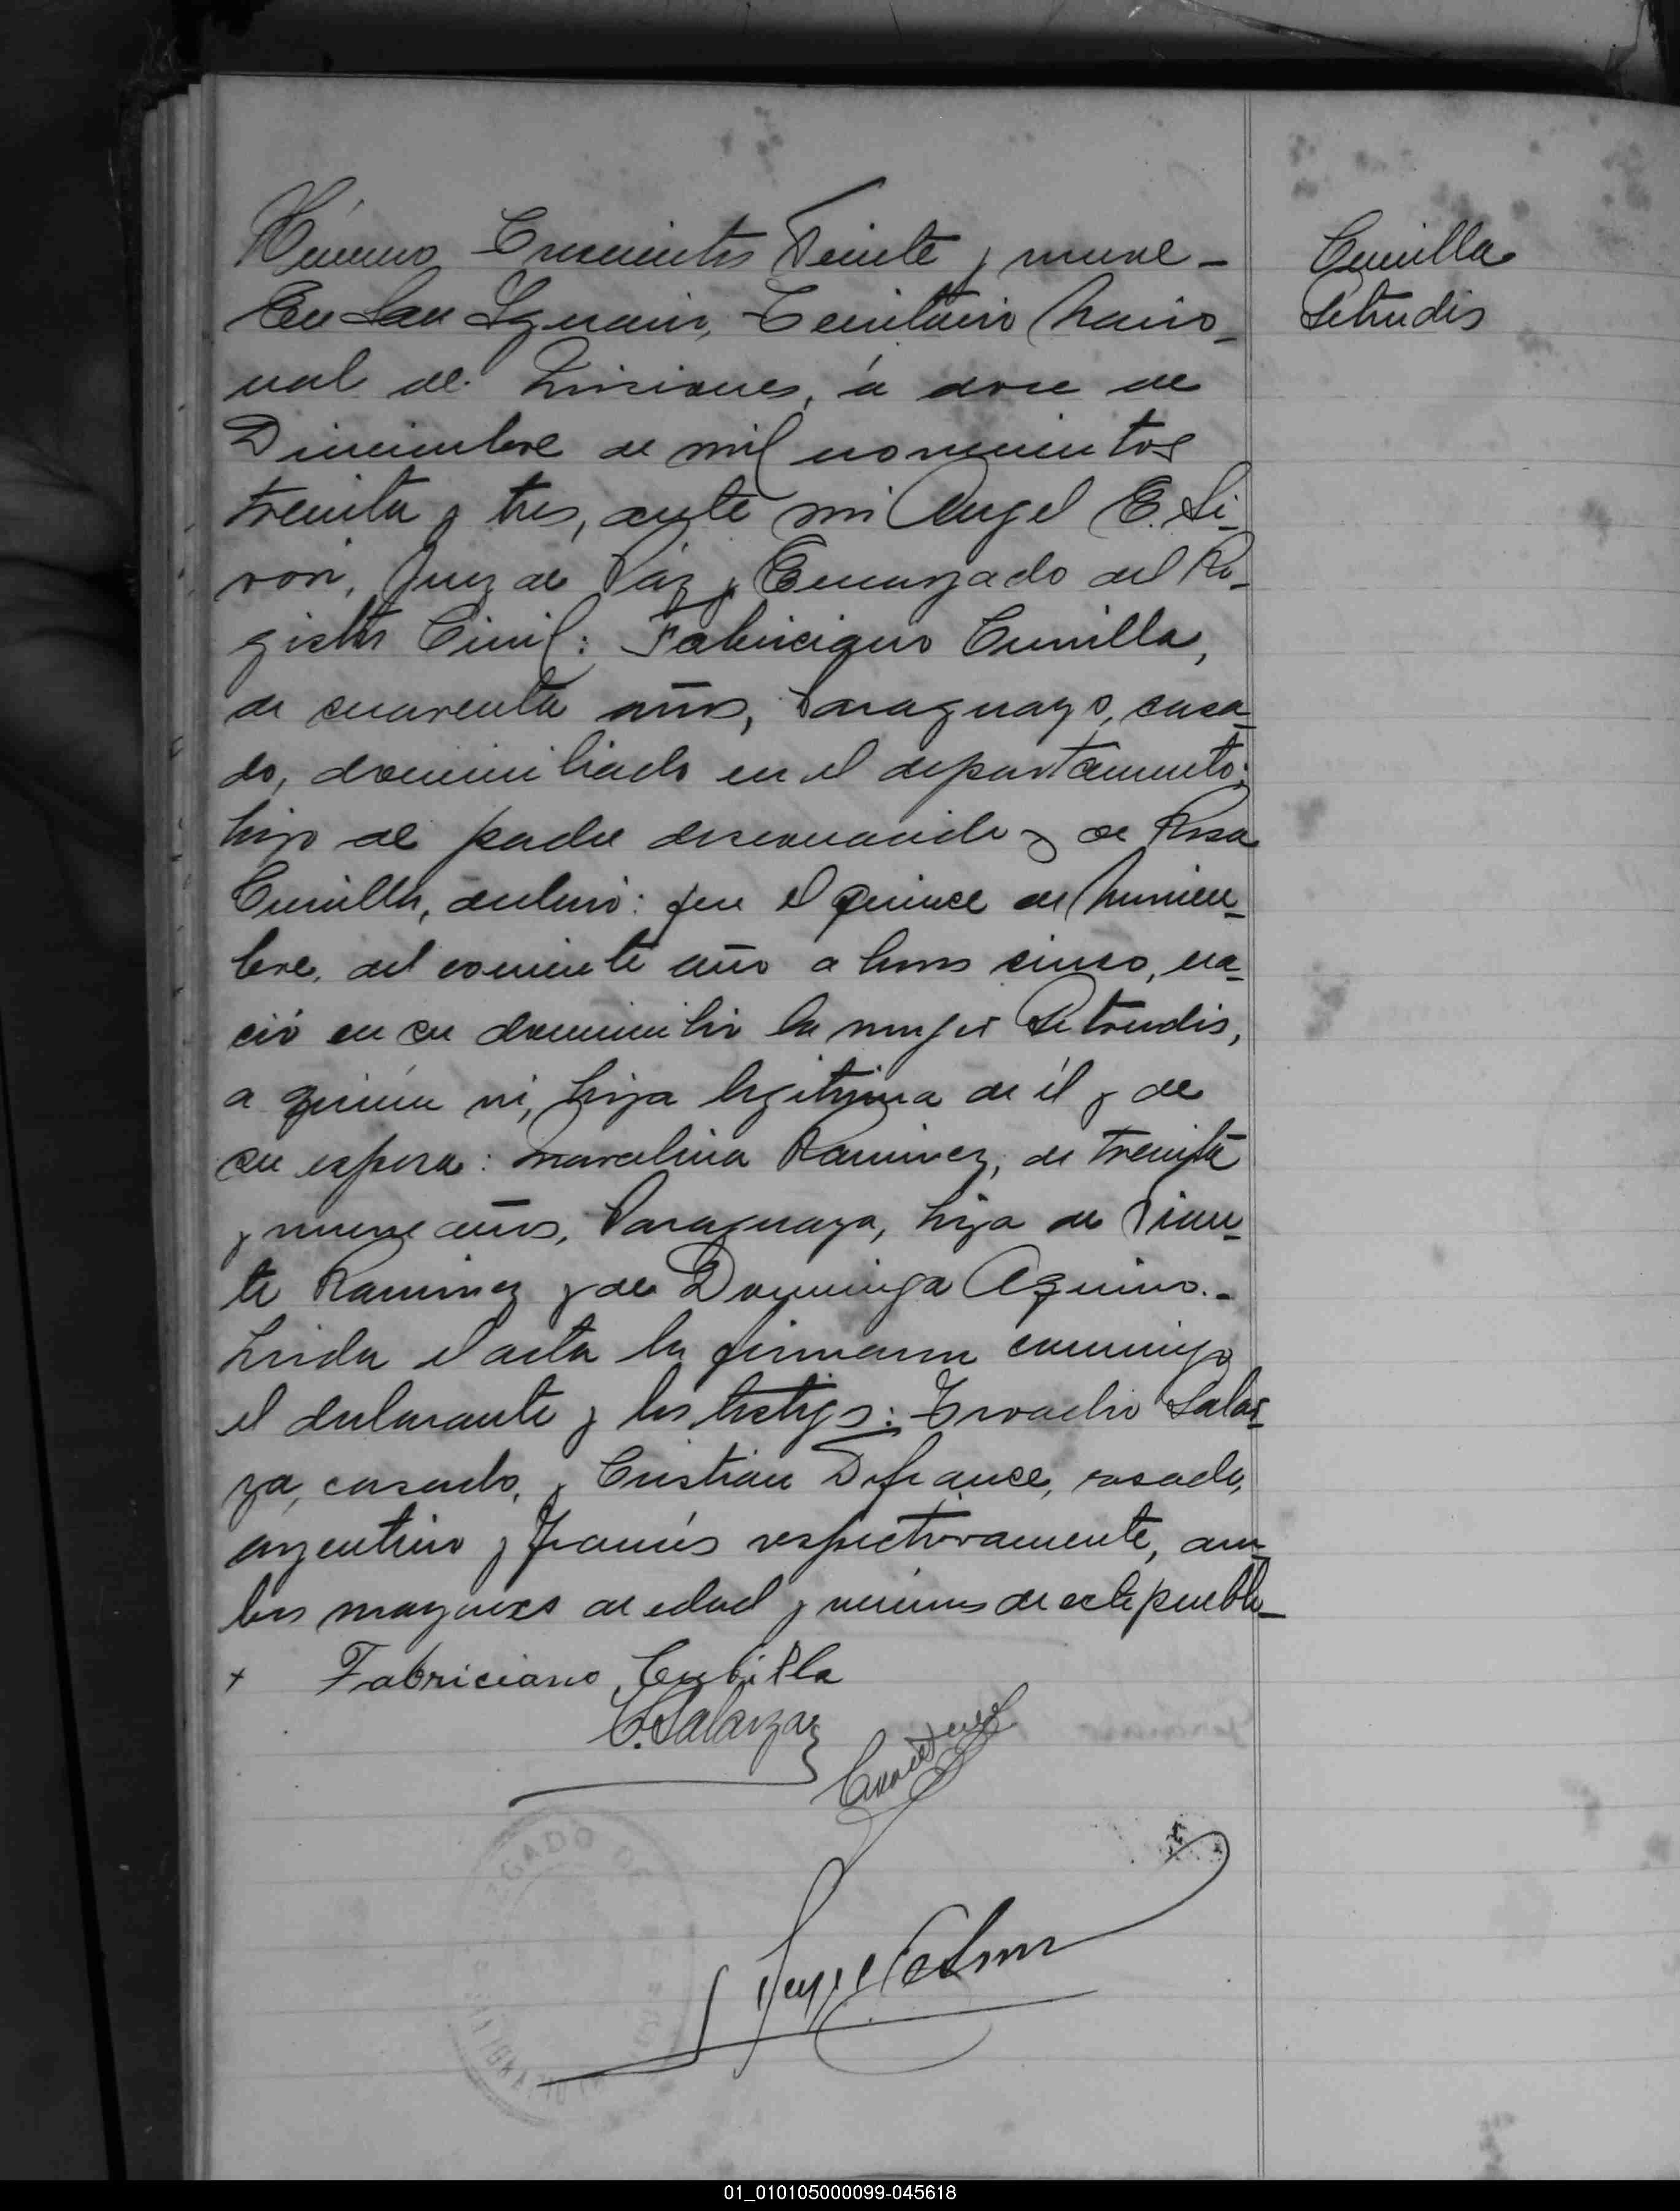 Número Trescientos Veinte y nueve -
Cuvilla
En San Ignacio, Territorio Nacio-
Letrudis
nal de Misiones, á doce de
Diciembre de mil novecientos
treinta y tres, ante mi Angel E. Li-
ron, Juez de Paz y Encargado del Re-
gistro Civil: Fabriciano Cuvilla,
de cuarenta años, Paraguayo, casa-
do, domiciliado en el departamento;
hijo de padre desconocido y de Rosa
Cuvilla, declaró: que el quince de Noviem-
bre, del corriente año a horas cinco, na-
ció en su domicilio la mujer Letrudis,
a quien vi, hija legitima de él y de
su esposa: Marcelina Ramirez, de treinta
y nueve años, Paraguaya, hija de Vicen-
te Ramirez y de Dominga Aquino.-
Leida el acta la firmaron conmigo
el declarante y los testigos: Salar-
za, casado, y Cristian Defrance, casado,
argentino y Francés respectivamente, am-
bos mayores de edad y vecinos de este pueblo-
+ Fabriciano Cubilla
C. Salarza
JUZGADO DE
SAN IGNACIO
01_010105000099-045618